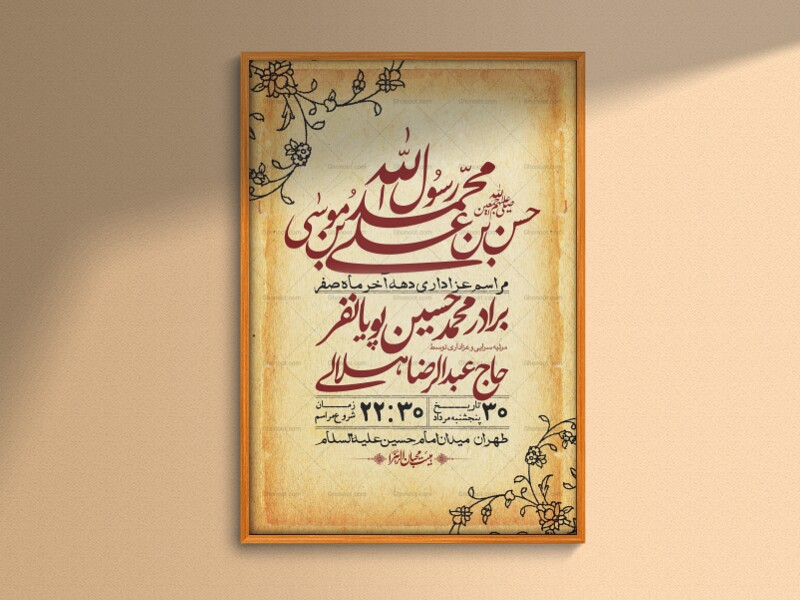 محمد رسول الله
صلی الله علیهم اجمعین
حسن بن علی بن موسی
مراسم عزاداری دهه آخر ماه صفر
برادر محمد حسین پویانفر
مرثیه سرایی و عزاداری توسط
حاج عبدالرضا هلالی
۳۰ تاریخ پنجشنبه مرداد ۲۲:۳۰ زمان شروع مراسم
طهران میدان امام حسین علیه السلام
Shonoot.com